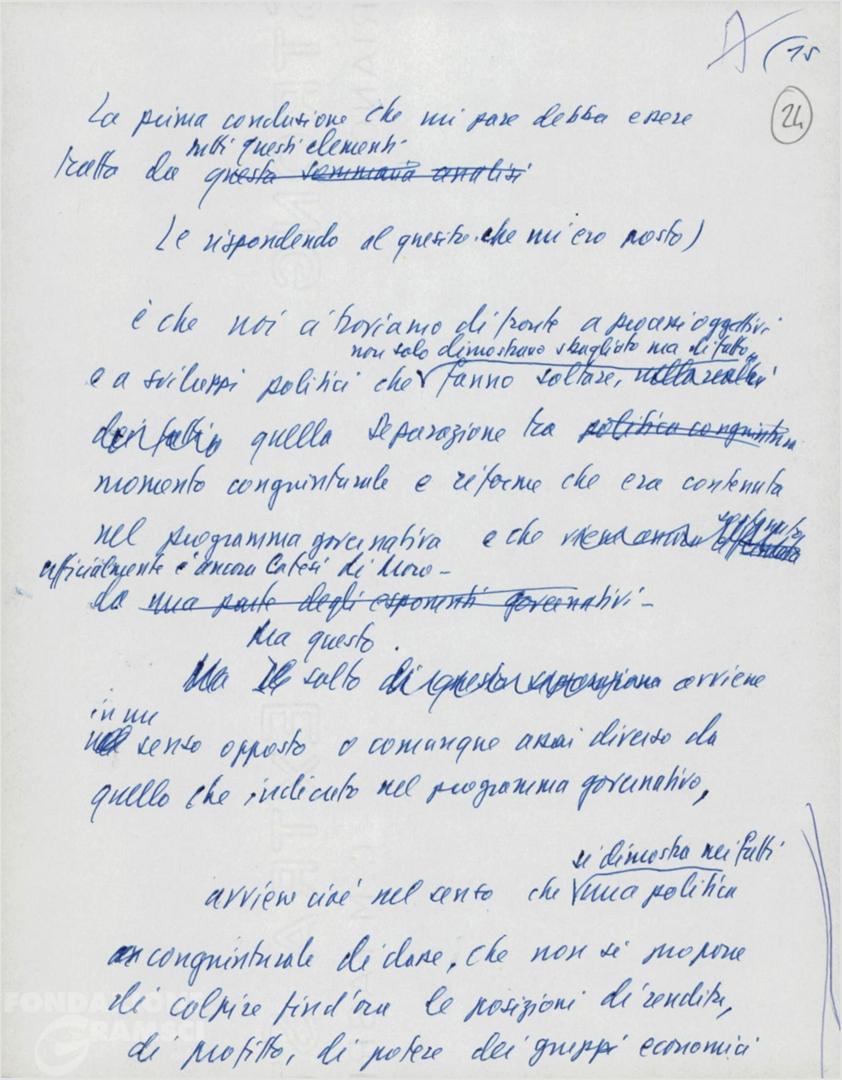 A (15
24
La prima conclusione che mi pare debba essere
tutti questi elementi
tratta da questa sommaria analisi
(e rispondendo al quesito che mi ero posto)
è che noi ci troviamo di fronte a processi oggettivi
non solo dimostrano sbagliato ma di fatto
e a sviluppi politici che fanno saltare, nella realtà
dei fatti quella separazione tra politica congiuntura
momento congiunturale e riforme che era contenuta
nel programma governativo e che viene ancora sostenuta
ufficialmente è ancora la tesi di Moro -
da una parte degli esponenti governativi -
Ma questo
Ma il salto di questa separazione avviene
in un
nel senso opposto o comunque assai diverso da
quello che indicato nel programma governativo,
si dimostra nei fatti
avviene cioè nel senso che una politica
congiunturale di classe, che non si propone
di colpire find'ora le posizioni di rendita,
di profitto, di potere dei gruppi economici
FONDAZIONE
GRAMSCI